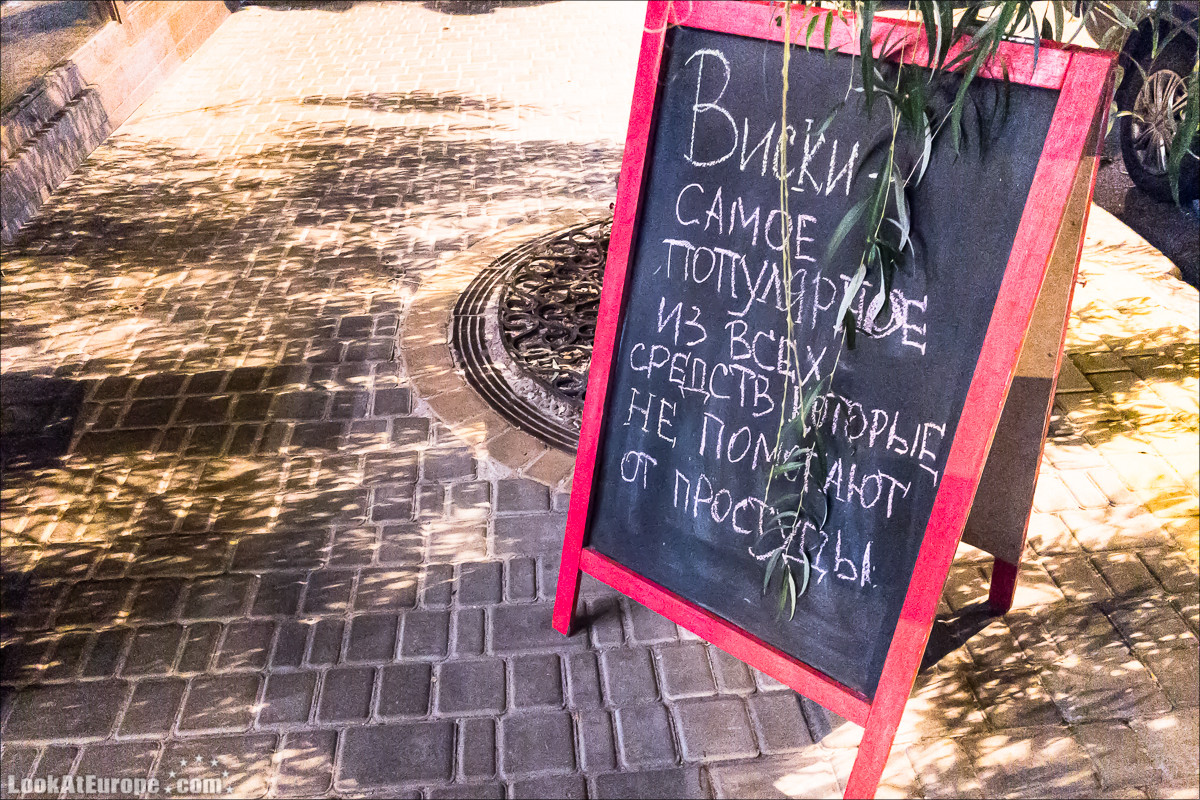 Виски
САМОЕ
ПОПУЛЯРНОЕ
ИЗ ВСЕХ
СРЕДСТВ, КОТОРЫЕ
НЕ ПОМОГАЮТ
ОТ ПРОСТУДЫ.
LookAtEurope.com